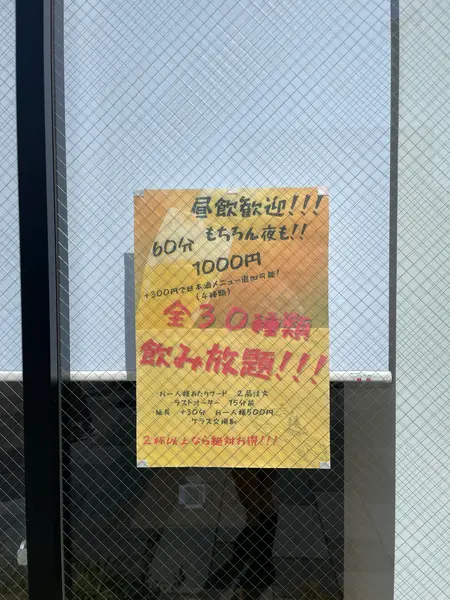 昼飲歓迎!!!
もちろん夜も!!
60分
1000円
+300円で日本酒メニュー追加可能!
(4種類)
全30種類
飲み放題!!!
お一人様あたりフード 2品注文
ラストオーダー 15分前
延長 +30分 お一人様500円
グラス交換制
2杯以上なら絶対お得!!!